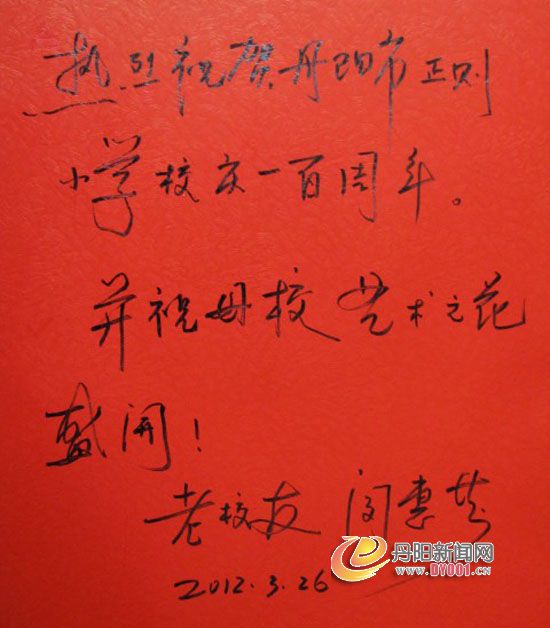 热烈祝贺丹阳市正则
小学校庆一百周年。
并祝母校艺术之花
盛开！
老校友 闵惠芬
2012.3.26
丹阳新闻网
WWW.DY001.CN